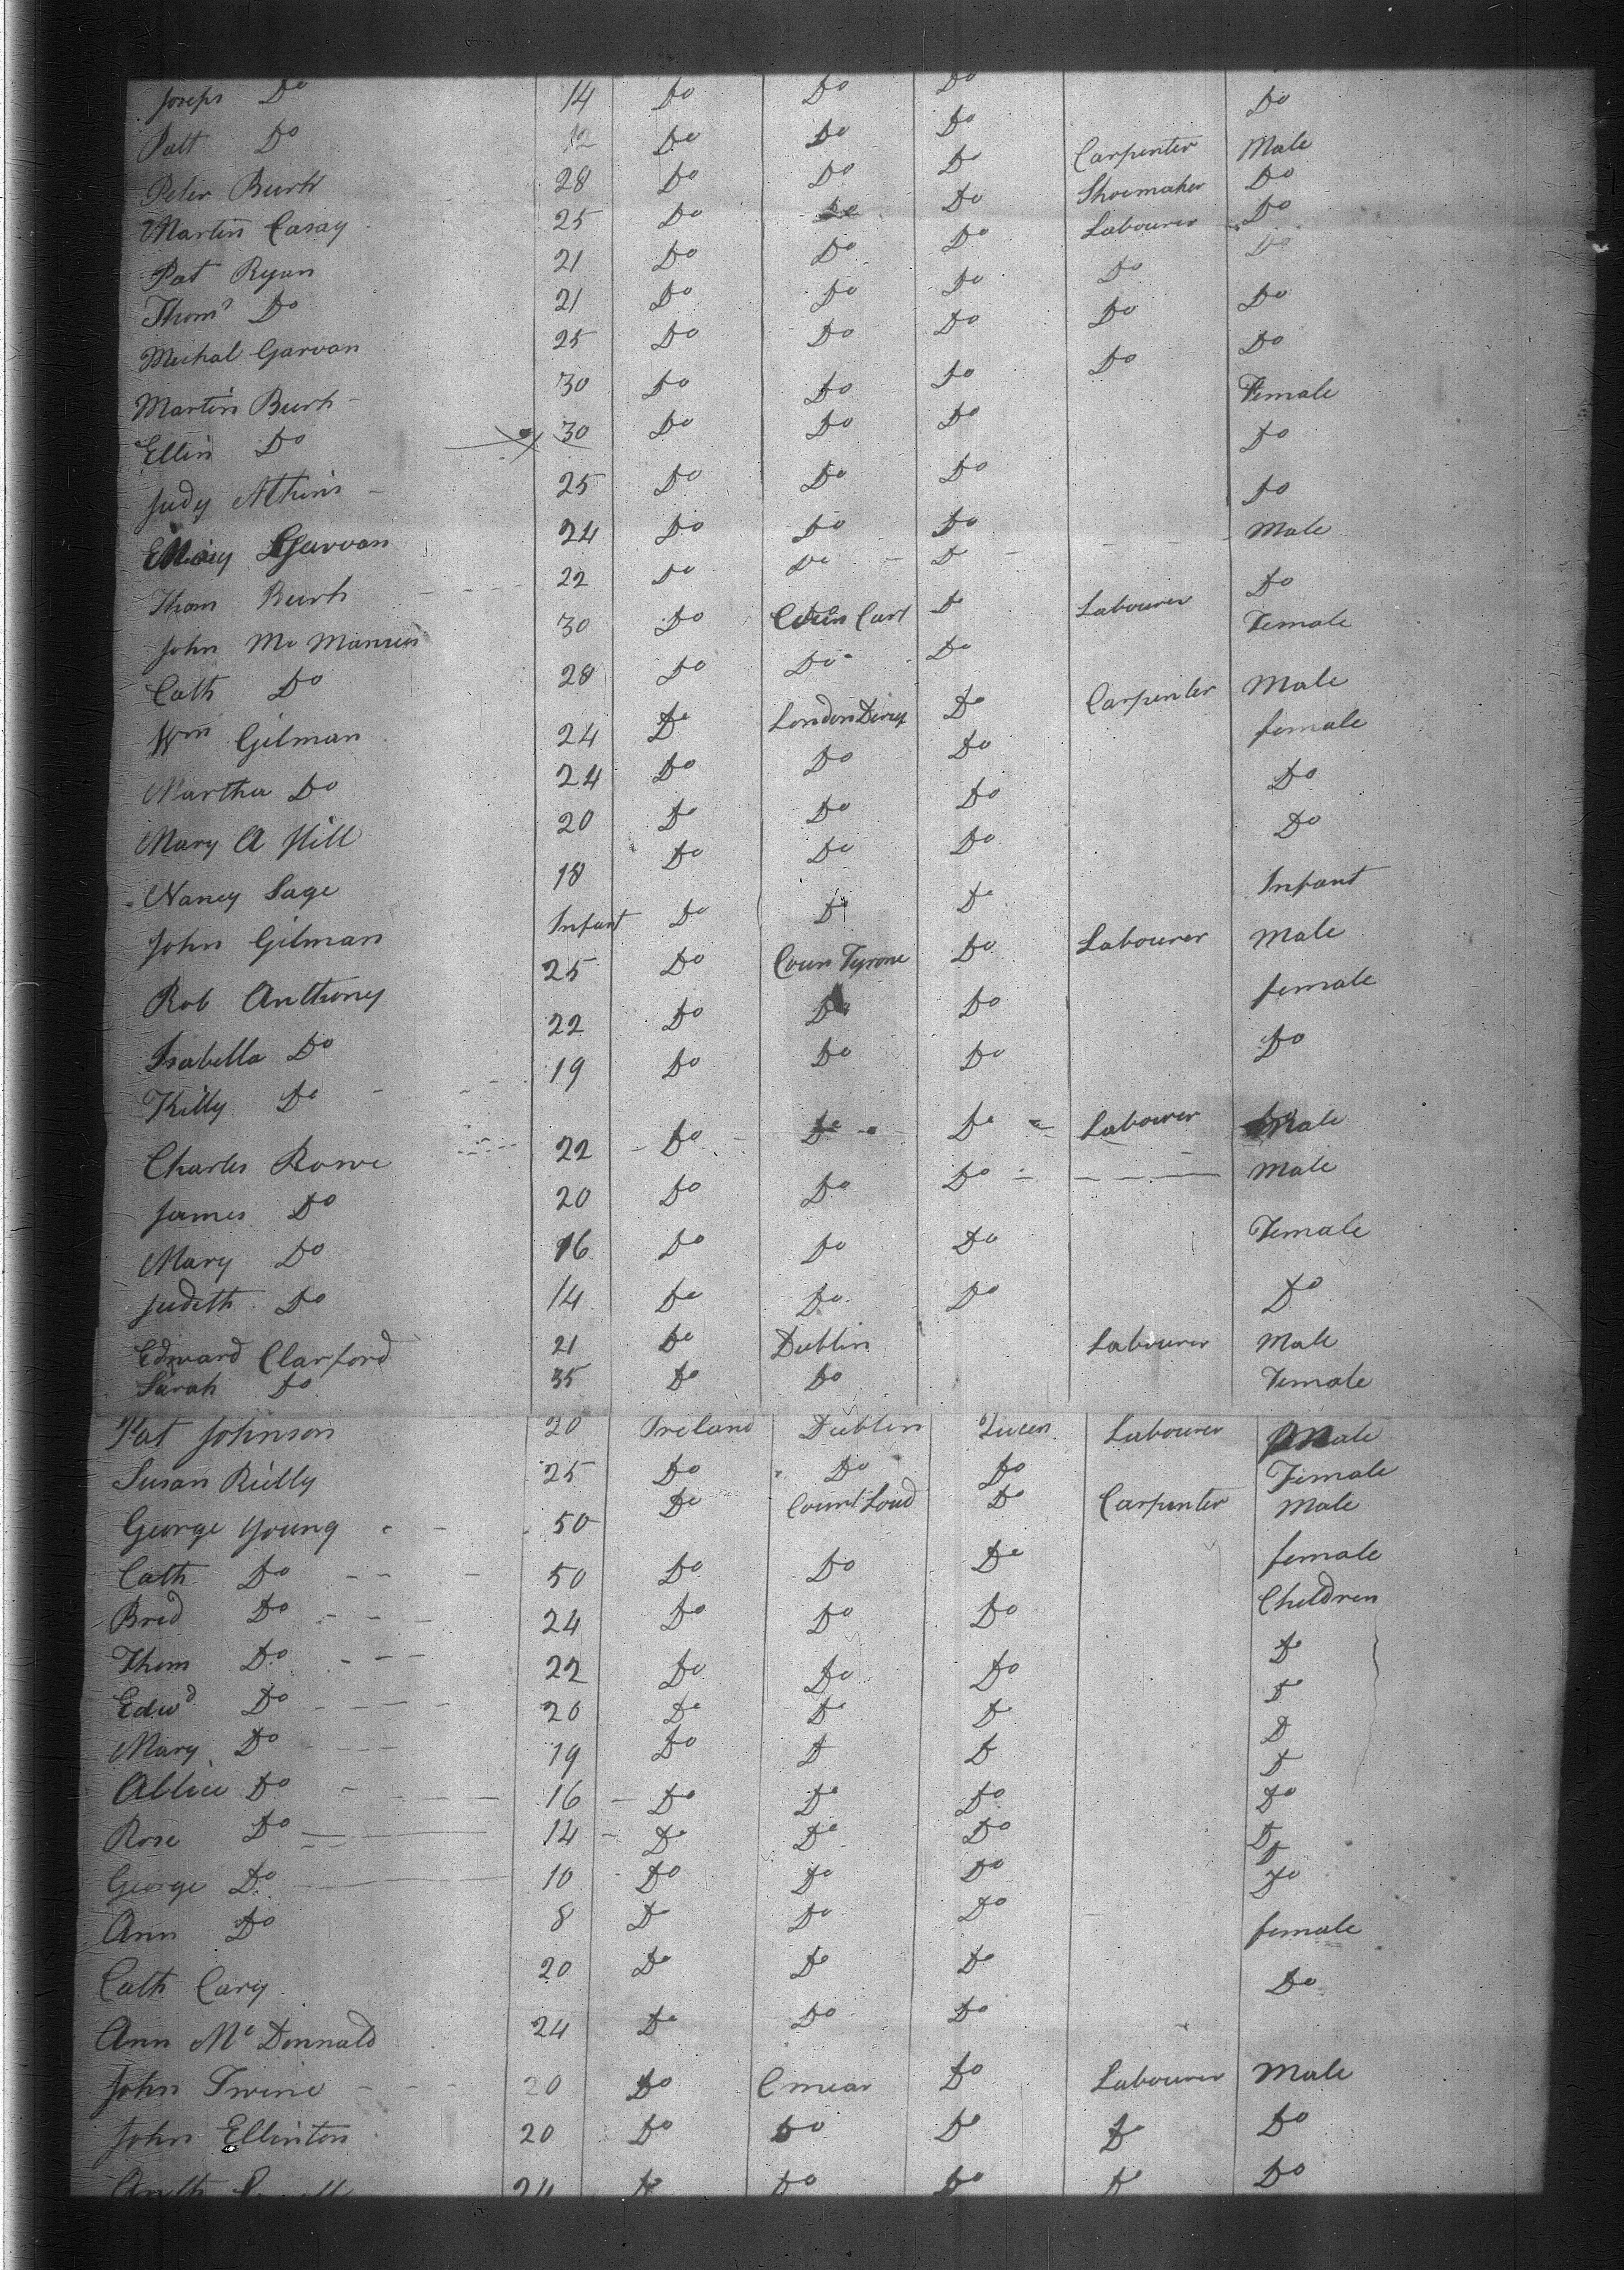 Joseph Do 14 Do Do Do Do
Patt Do 12 Do Do Do
Peter Burk 28 Do Do Do Carpenter Male
Martin Casay 25 Do Do Do Shoemaker Do
Pat Ryan 21 Do Do Do Labourer Do
Thoms Do 21 Do Do Do Do Do
Michal Garvan 25 Do Do Do Do Do
Martin Burk 30 Do Do Do Do Do
Ellin Do 30 Do Do Do Female
Judy Atkins 25 Do Do Do Do
Mary Garvan 24 Do Do Do Do
Thom Burk 22 Do Do Do Male
John Mc Manus 30 Do Cart Do Labourer Do
Cath Do 28 Do Do Do Female
Wm Gilman 24 Do London Derry Do Carpenter Male
Martha Do 24 Do Do Do female
Mary A Hill 20 Do Do Do Do
Nancy Sage 18 Do Do Do Do
John Gilman Infant Do Do Do Infant
Rob Anthony 25 Do Coun Tyrone Do Labourer Male
Isabella Do 22 Do Do Do female
Kitty Do 19 Do Do Do Do
Charles Rowe 22 Do Do Do Labourer Male
James Do 20 Do Do Do Male
Mary Do 16 Do Do Do Female
Judith Do 14 Do Do Do Do
Edward Clarford 21 Do Dublin Labourer Male
Sarah Do 35 Do Do Female
Pat Johnson 20 Ireland Dublin Queen Labourer Male
Susan Rielly 25 Do Do Do Female
George Young 50 Do Count Loud Do Carpenter Male
Cath Do 50 Do Do Do female
Brid Do 24 Do Do Do Children
Thom Do 22 Do Do Do Do
Edwd Do 20 Do Do Do Do
Mary Do 19 Do D D D
Allice Do 16 Do Do Do D
Rose Do 14 Do Do Do Do
George Do 10 Do Do Do Do
Ann Do 8 Do Do Do Do
Cath Cary 20 Do Do Do female
Ann Mc Donnald 24 Do Do Do Do
John Irvine 20 Do Do Labourer Male
John Ellinton 20 Do Do Do Do Do
24 Do Do Do Do Do